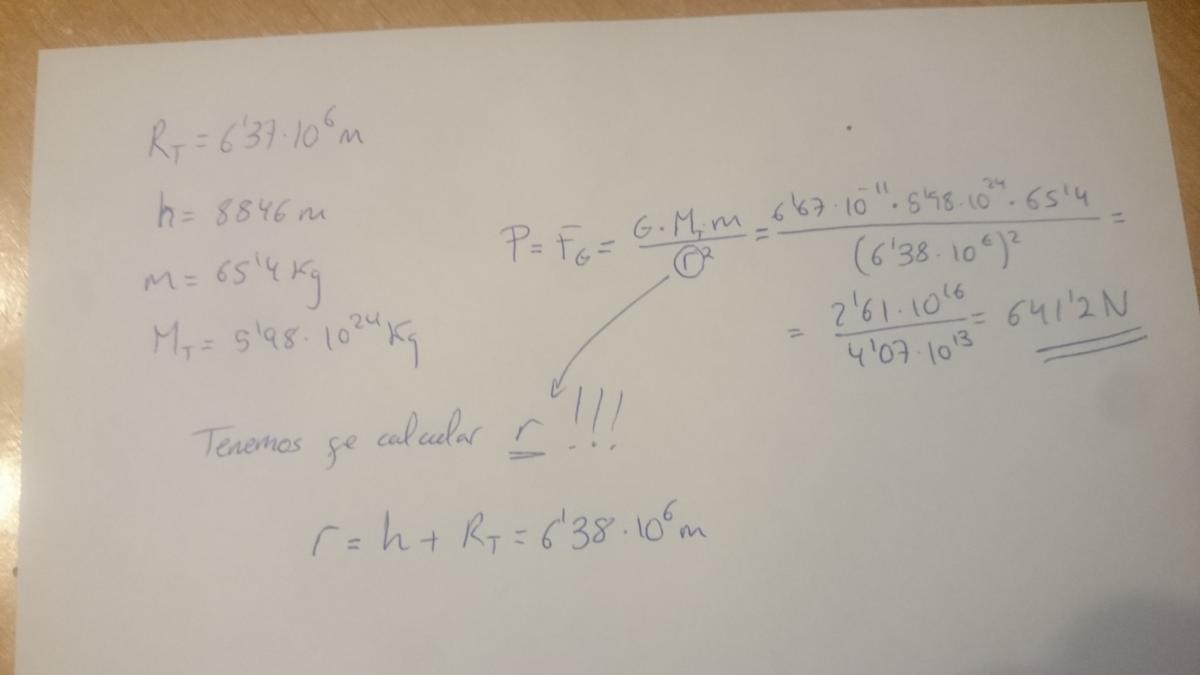 R_T = 6'37·10^6 m
h = 8846 m
m = 65'4 Kg
M_T = 5'98·10^24 Kg
P = F_G = G·M_T·m / r^2 = 6'67·10^-11·5'98·10^24·65'4 / (6'38·10^6)^2 =
= 2'61·10^16 / 4'07·10^13 = 641'2 N
Tenemos qe calcular r !!!
r = h + R_T = 6'38·10^6 m